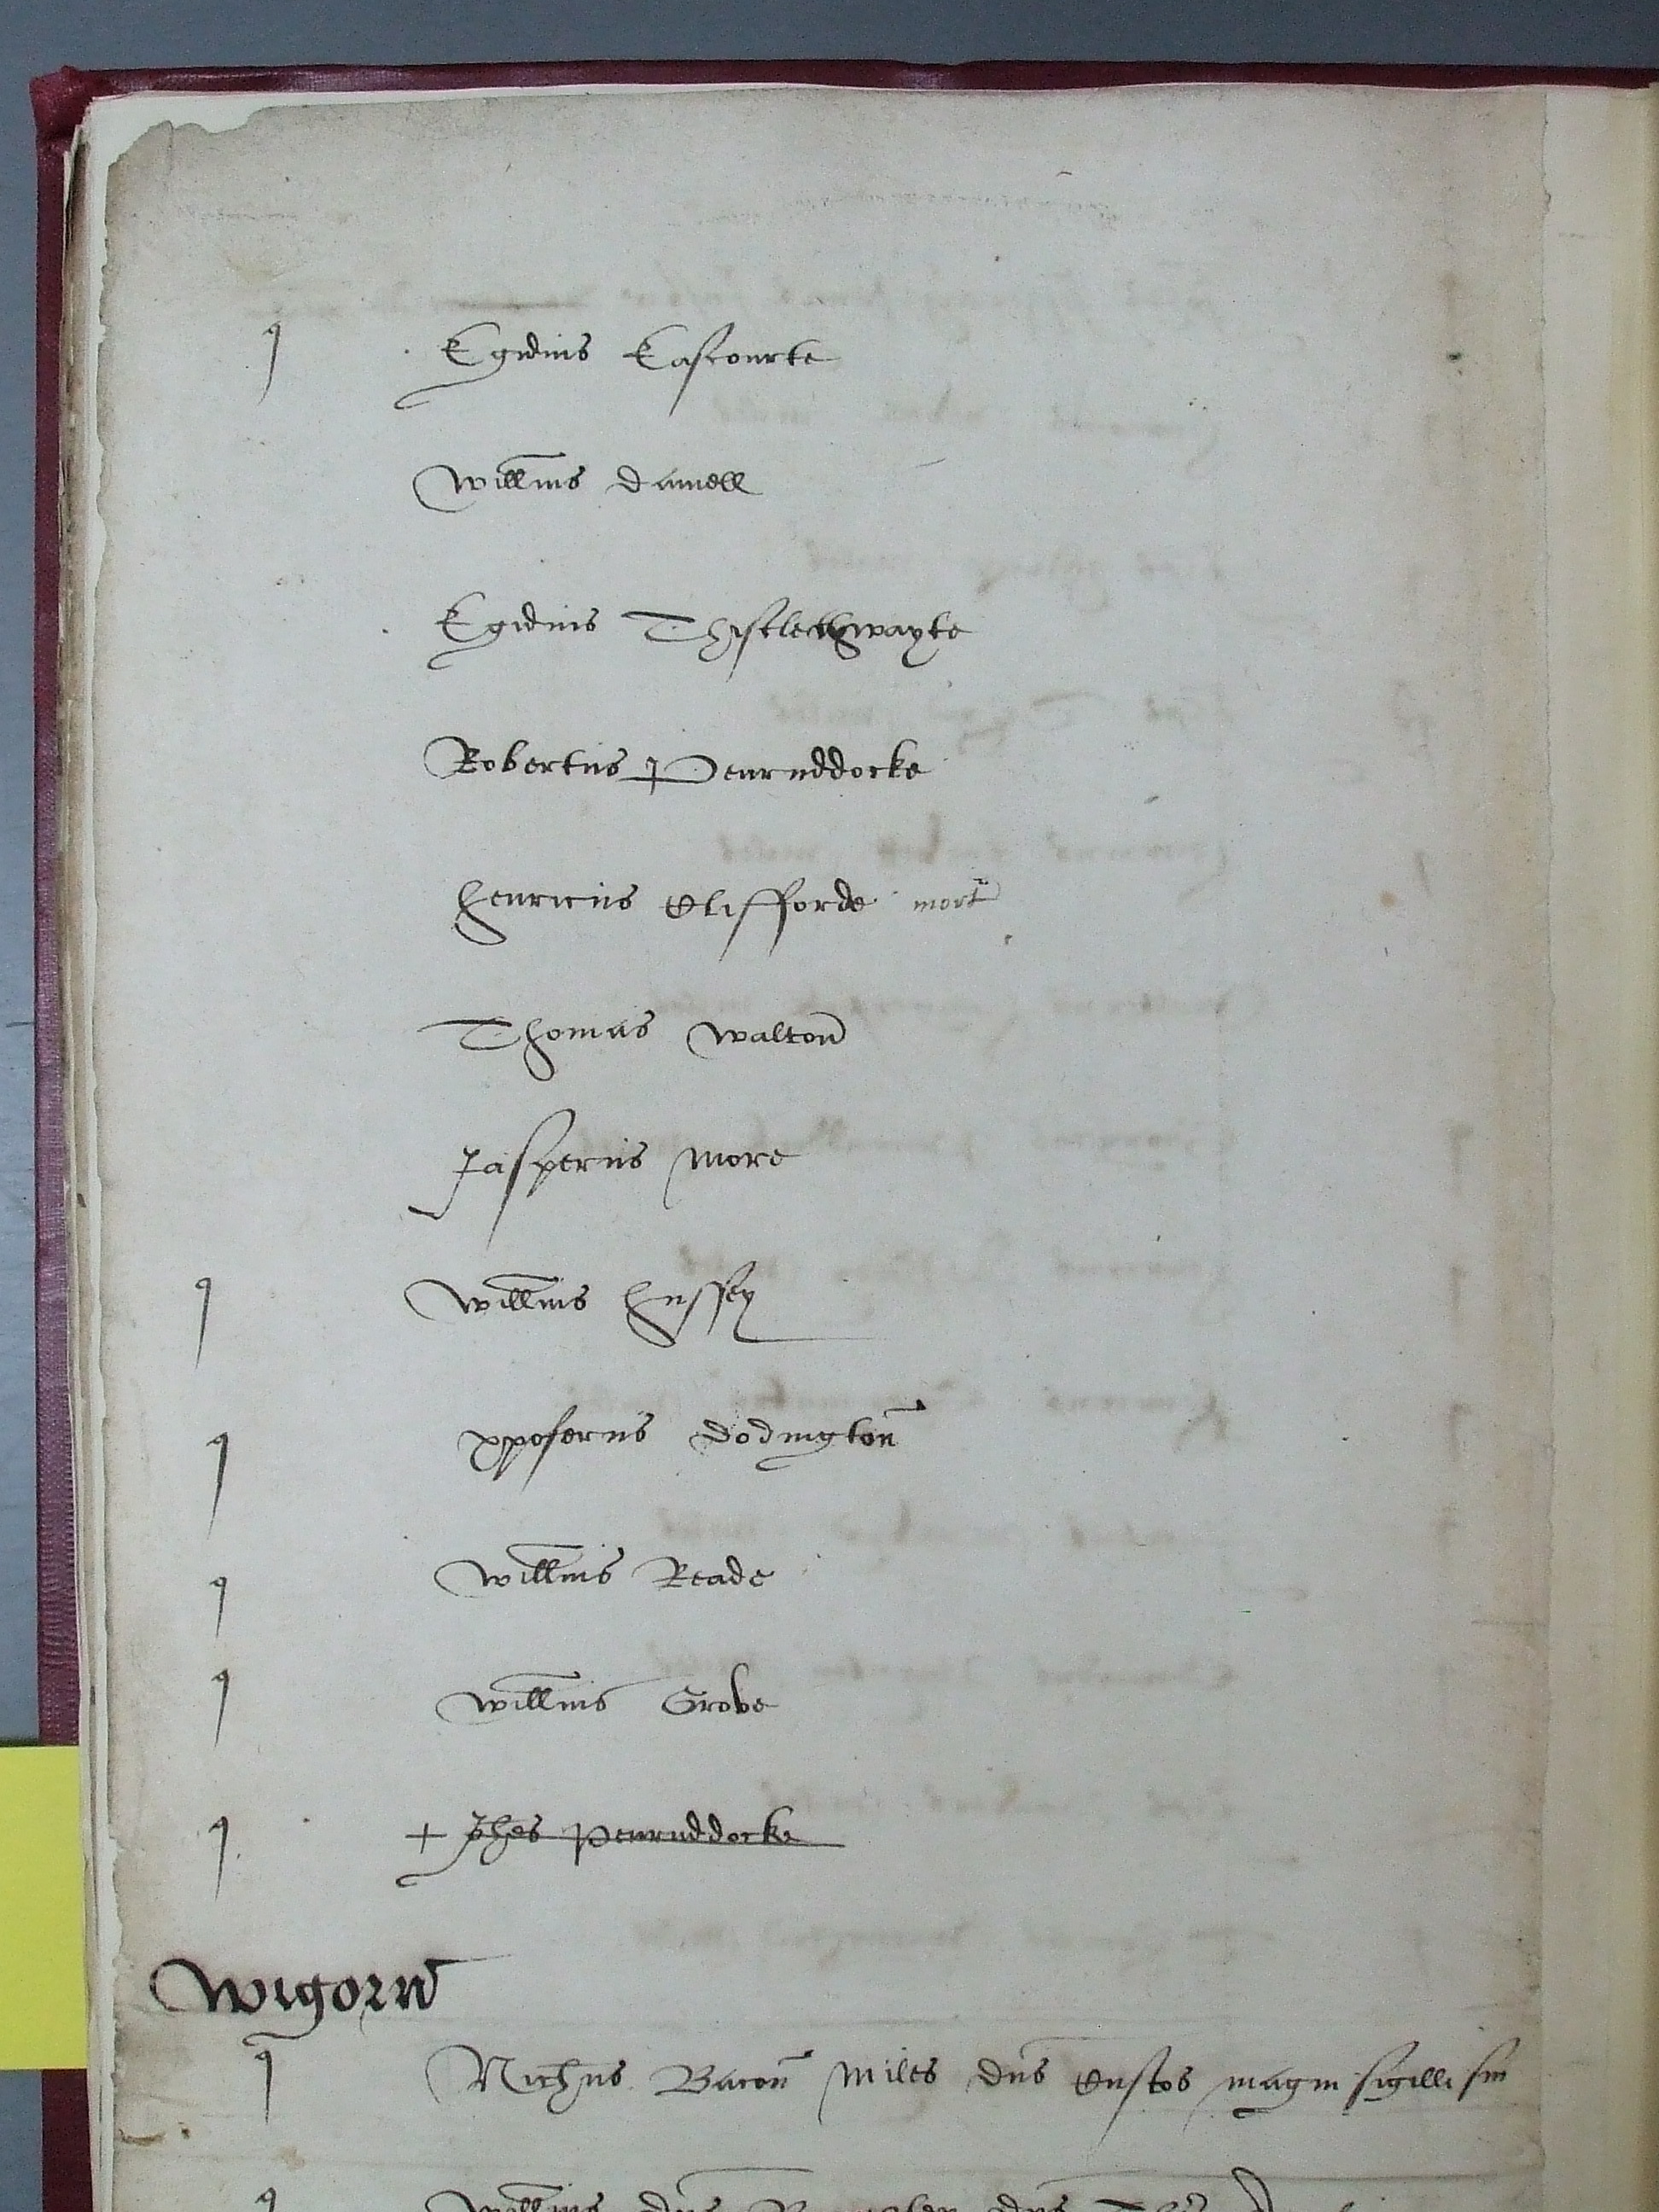 q Egidius Eascourte
Willms Darnell
Egidius Thistlethwayte
Robertus Penruddocke
Henricus Clifforde mort
Thomas Walton
Jasperus More
q Willms Hussey
q xpoferus Dodington
q Willms Reade
q Willms Grove
q + Jhes Penruddocke
Wigorn
q Nichus Bacon Miles dns Custos magni sigilli
q Willms dns dns